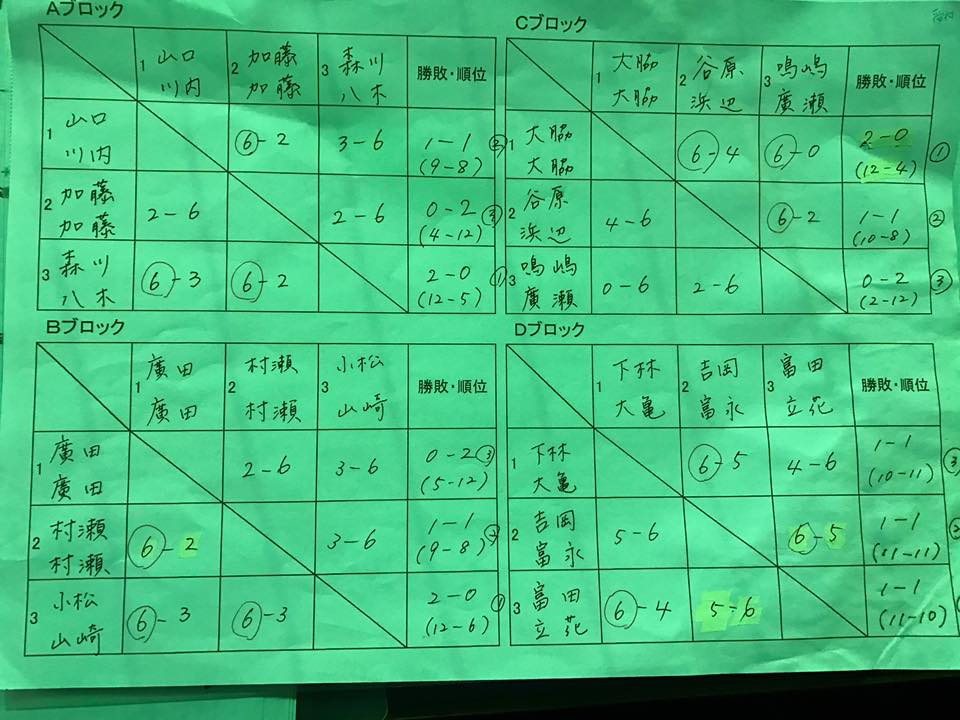 Aブロック
1 山口 川内 2 加藤 加藤 3 森川 八木 勝敗・順位
1 山口 川内 ⑥-2 3-6 1-1 (9-8) ②
2 加藤 加藤 2-6 2-6 0-2 (4-12) ③
3 森川 八木 ⑥-3 ⑥-2 2-0 (12-5) ①
Cブロック
1 大脇 大脇 2 谷原 浜辺 3 鳴嶋 廣瀬 勝敗・順位
1 大脇 大脇 ⑥-4 ⑥-0 2-0 (12-4) ①
2 谷原 浜辺 4-6 ⑥-2 1-1 (10-8) ②
3 鳴嶋 廣瀬 0-6 2-6 0-2 (2-12) ③
Bブロック
1 廣田 廣田 2 村瀬 村瀬 3 小松 山崎 勝敗・順位
1 廣田 廣田 2-6 3-6 0-2 (5-12) ③
2 村瀬 村瀬 ⑥-2 3-6 1-1 (9-8) ②
3 小松 山崎 ⑥-3 ⑥-3 2-0 (12-6) ①
Dブロック
1 下林 大亀 2 吉岡 富永 3 富田 立花 勝敗・順位
1 下林 大亀 ⑥-5 4-6 1-1 (10-11) ③
2 吉岡 富永 5-6 ⑥-5 1-1 (11-11) ②
3 富田 立花 ⑥-4 5-6 1-1 (11-10)